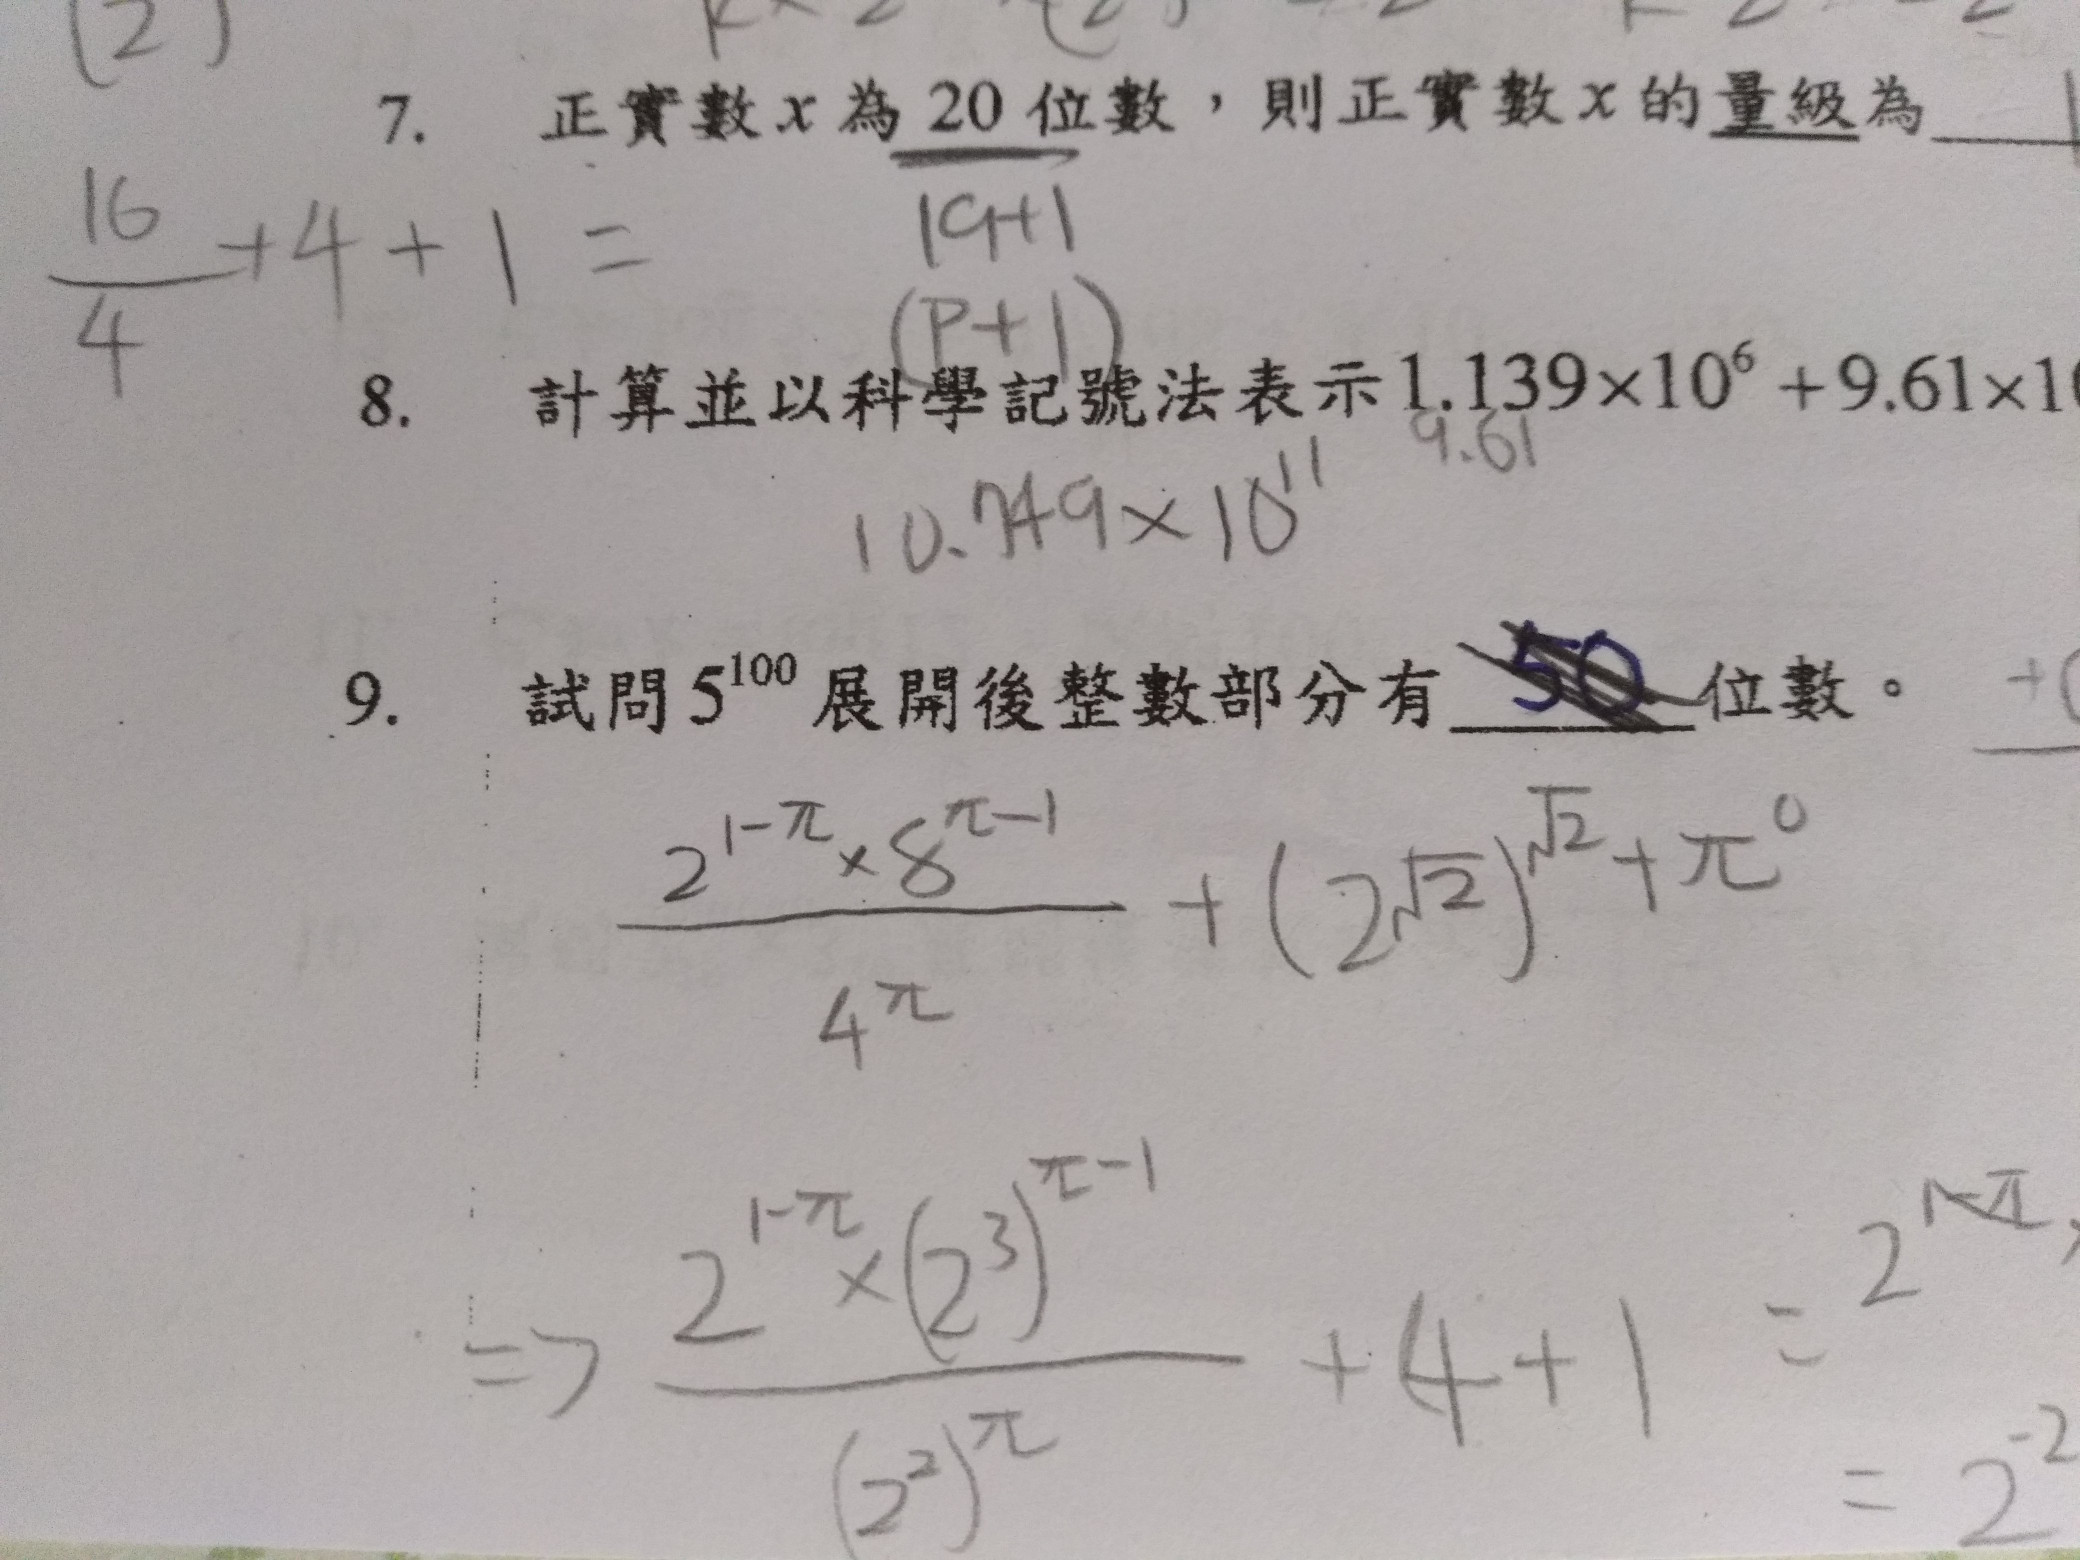 (2)
7. 正實數 x 為 20 位數，則正實數 x 的量級為
16/4 + 4 + 1 =
19+1
(P+1)
8. 計算並以科學記號法表示 1.139×10⁶ + 9.61×10
9.61
10.749×10¹¹
9. 試問 5¹⁰⁰ 展開後整數部分有 50 位數。
(2^(1-π) × 8^(π-1)) / 4^π + (2^√2)^√2 + π⁰
=> (2^(1-π) × (2³)^(π-1)) / (2²)^π + 4 + 1 = 2^(1-π)
= 2^-2